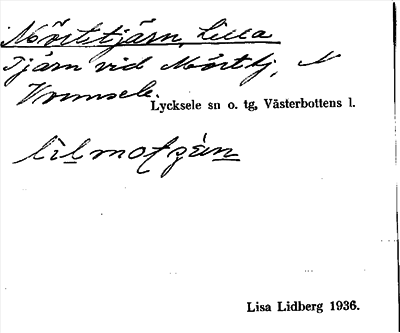 Mörttjärn, Lilla
Tjärn vid Mörttj, N
Vrmsele.
Lycksele sn o. tg, Västerbottens l.
Lisa Lidberg 1936.